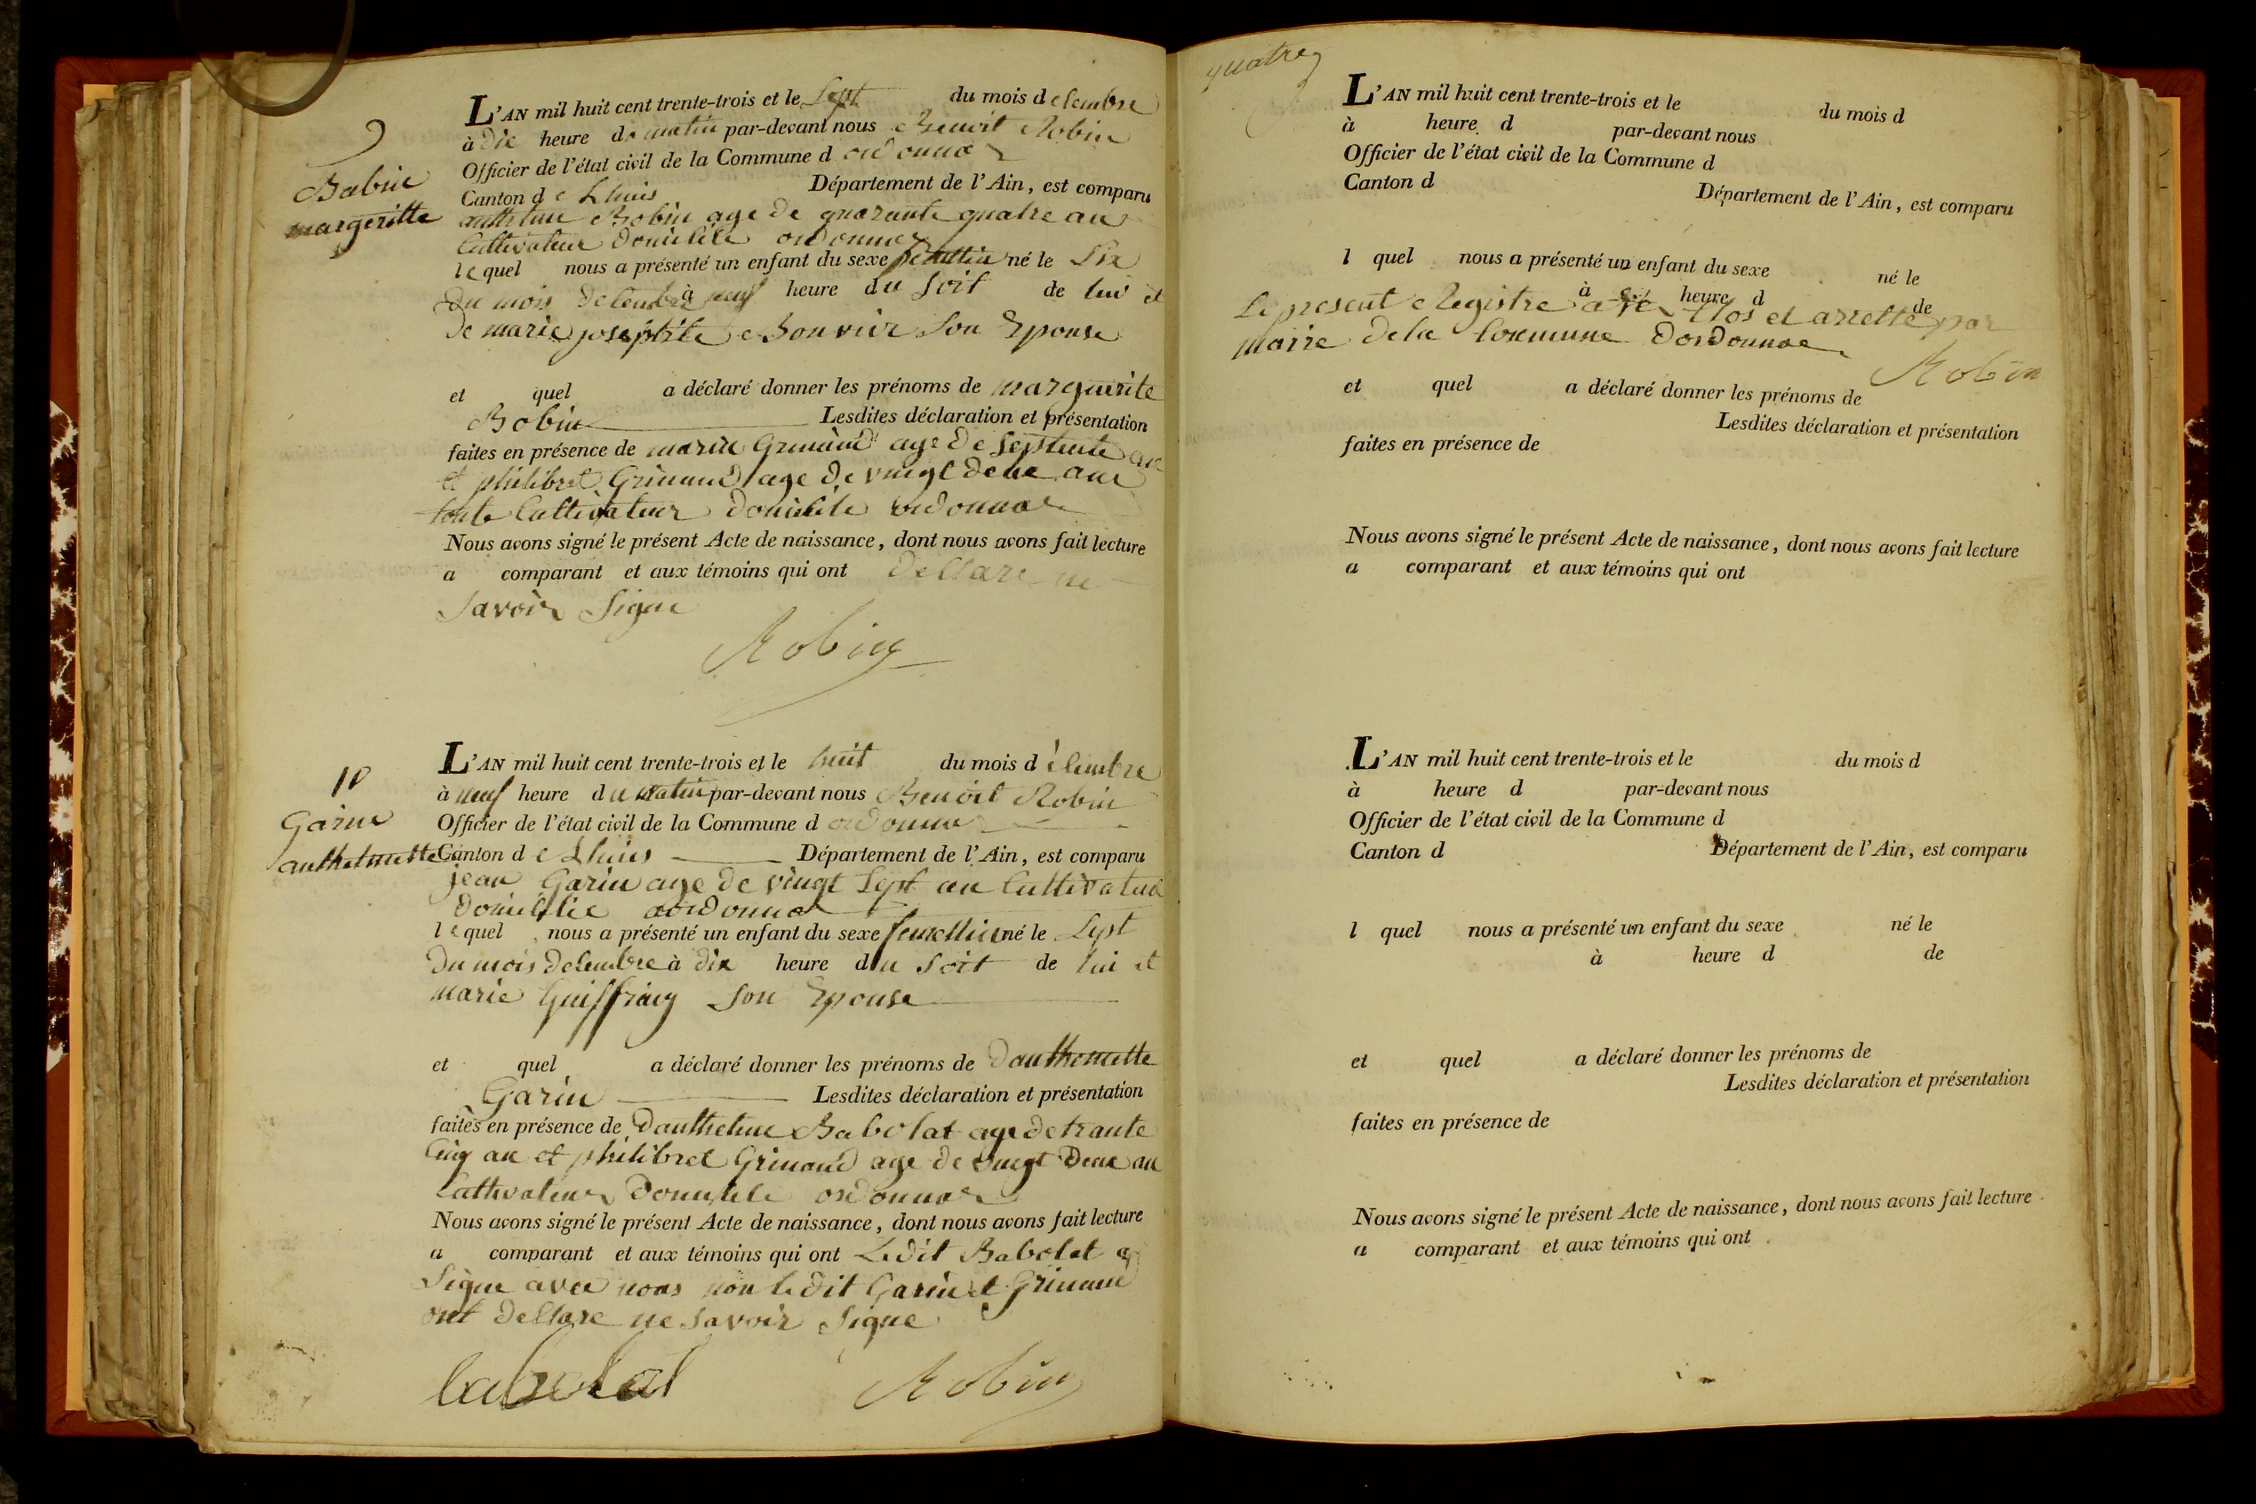 9
Babin
margeritte
L'AN mil huit cent trente-trois et le Sept du mois decembre
à Dix heure du matin par-devant nous Benoit Robin
Officier de l'état civil de la Commune d ordonna
Canton de Lhuis Département de l'Ain, est comparu
anthelme Bobin age de quarante quatre an
Cultivateur Domicilie ordonna
lequel nous a présenté un enfant du sexe né le Six
Du mois decembre à neuf heure du Soit de lui et
De marie josephte Bonvier Son Epouse
et quel a déclaré donner les prénoms de marguerite
Bobin Lesdites déclaration et présentation
faites en présence de marin Grimand age De Septente an
et philibret Grimand age De vingt deux an
toute Cultivateur Domicile ordonna
Nous avons signé le présent Acte de naissance, dont nous avons fait lecture
a comparant et aux témoins qui ont Dellare ne
Savoir Signe
Robin
10
Garin
anthelmette
L'AN mil huit cent trente-trois et le huit du mois d ecembre
à neuf heure du matin par-devant nous Benoit Robin
Officier de l'état civil de la Commune d ordonna
Canton de Lhuis Département de l'Ain, est comparu
jean Garin age De vingt Sept an Cultivateur
Domicilie aordonna
lequel nous a présenté un enfant du sexe né le Sept
Du mois Decembre à dix heure du Soit de lui et
marie Guiffray Son Epouse
et quel a déclaré donner les prénoms de Danthemette
Garin Lesdites déclaration et présentation
faites en présence de Danthelme Babolat age de trante
Cinq an et philibret Grimand age De vingt Deux an
Cultivateur Domicile ordonna
Nous avons signé le présent Acte de naissance, dont nous avons fait lecture
a comparant et aux témoins qui ont Ledit Babolat a
Signe avec nous non ledit Garin et Grimand
ont Dellare ne Savoir Signe
babolat Robin
quatre
L'AN mil huit cent trente-trois et le du mois d
à heure d par-devant nous
Officier de l'état civil de la Commune d
Canton d Département de l'Ain, est comparu
l quel nous a présenté un enfant du sexe né le
à heure d de
Le present Registre a ete Clos et arrette par
maire De la Commune Dordonna
Robin
et quel a déclaré donner les prénoms de
Lesdites déclaration et présentation
faites en présence de
Nous avons signé le présent Acte de naissance, dont nous avons fait lecture
a comparant et aux témoins qui ont
L'AN mil huit cent trente-trois et le du mois d
à heure d par-devant nous
Officier de l'état civil de la Commune d
Canton d Département de l'Ain, est comparu
l quel nous a présenté un enfant du sexe né le
à heure d de
et quel a déclaré donner les prénoms de
Lesdites déclaration et présentation
faites en présence de
Nous avons signé le présent Acte de naissance, dont nous avons fait lecture
a comparant et aux témoins qui ont